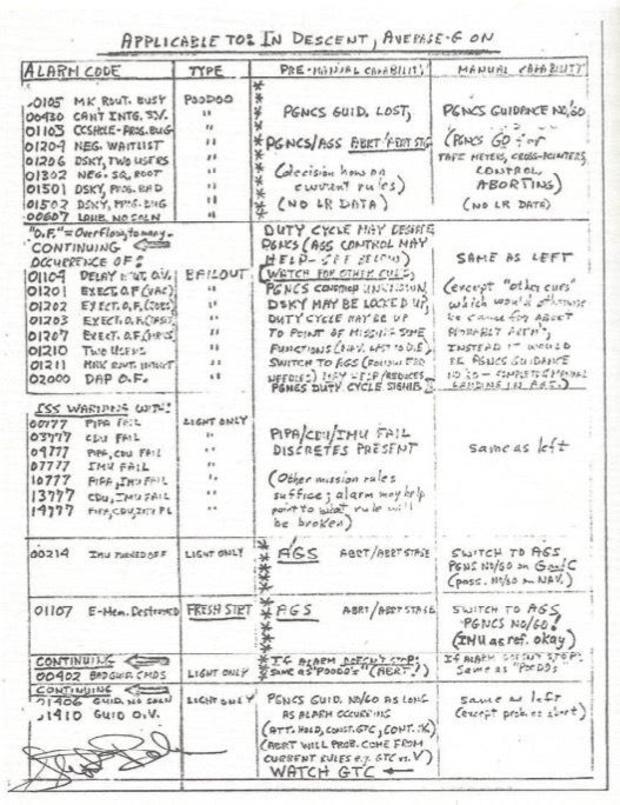 APPLICABLE TO: IN DESCENT, AVERAGE-G ON
ALARM CODE TYPE PRE-MANUAL CAPABILITY MANUAL CAPABILITY
01105 MK ROUT. BUSY POODOO
00430 CAN'T INTG. S.V. "
01103 CCSHOLE-PROG. BUG "
01204 NEG. WAITLIST "
01206 DSKY, TWO USERS "
01302 NEG. SQ. ROOT "
01501 DSKY, PROG. BAD "
01502 DSKY, PROG. BUG "
00607 LAMB. NO SOLN "
PGNCS GUID. LOST,
PGNCS/AGS ABRT/ABRT STG
(decision how on
current rules)
(NO LR DATA)
PGNCS GUIDANCE NO/GO
(PGNCS GO for
TAPE METERS, CROSS-POINTERS,
CONTROL,
ABORTING)
(NO LR DATA)
"O.F." = Overflow, too many.
CONTINUING
OCCURRENCE OF:
01104 DELAY ROUT. O.V. BAILOUT
01201 EXECT. O.F (VAC) "
01202 EXECT. O.F. (JOBS) "
01203 EXECT. O.F. "
01207 EXECT. O.F. "
01210 TWO USERS "
01211 MRK ROUT. INTRUPT "
02000 DAP O.F. "
DUTY CYCLE MAY DEGRADE
PGNCS (AGS CONTROL MAY
HELP - SEE BELOW)
WATCH FOR OTHER CUES,
PGNCS CONDITION UNKNOWN,
DSKY MAY BE LOCKED UP,
DUTY CYCLE MAY BE UP
TO POINT OF MISSING SOME
FUNCTIONS (NAV. LAST TO DIE),
SWITCH TO AGS (FOLLOW ERR
NEEDLES) MAY HELP (REDUCES
PGNCS DUTY CYCLE SIGNIF.)
SAME AS LEFT
(except "other cues"
which would otherwise
be cause for abort
probably
INSTEAD IT WOULD
BE PGNCS GUIDANCE
NO GO - COMPLETE MANUAL
LANDING IN AGS.)
ISS WARNING WITH:
00777 PIPA FAIL LIGHT ONLY
03777 CDU FAIL "
04777 PIPA, CDU FAIL "
07777 IMU FAIL "
10777 PIPA, IMU FAIL "
13777 CDU, IMU FAIL "
14777 PIPA, CDU, IMU FL "
PIPA/CDU/IMU FAIL
DISCRETES PRESENT
(Other mission rules
suffice; alarm may help
point to what rule will
be broken)
same as left
00214 IMU TURNED OFF LIGHT ONLY AGS ABRT/ABRT STAGE
SWITCH TO AGS
PGNS NO/GO on G and C
(poss. NO/GO on NAV.)
01107 E-Mem. Destroyed FRESH STRT AGS ABRT/ABRT STAGE
SWITCH TO AGS
PGNCS NO/GO!
(IMU as ref. okay)
CONTINUING
00402 BAD GUID. CMDS LIGHT ONLY
IF ALARM DOESN'T STOP,
SAME AS "POODOO's" (ABRT!)
If ALARM DOESN'T STOP,
Same as "POODOO's"
CONTINUING
01406 GUID. NO SOLN LIGHT ONLY
01410 GUID O.V. "
PGNCS GUID. NO/GO AS LONG
AS ALARM OCCURRING
(ATT. HOLD, CONST. GTC, CONT. OK)
(ABRT WILL PROB. COME FROM
CURRENT RULES e.g. GTC vs. V)
WATCH GTC
same as left
(except prob. no abort)